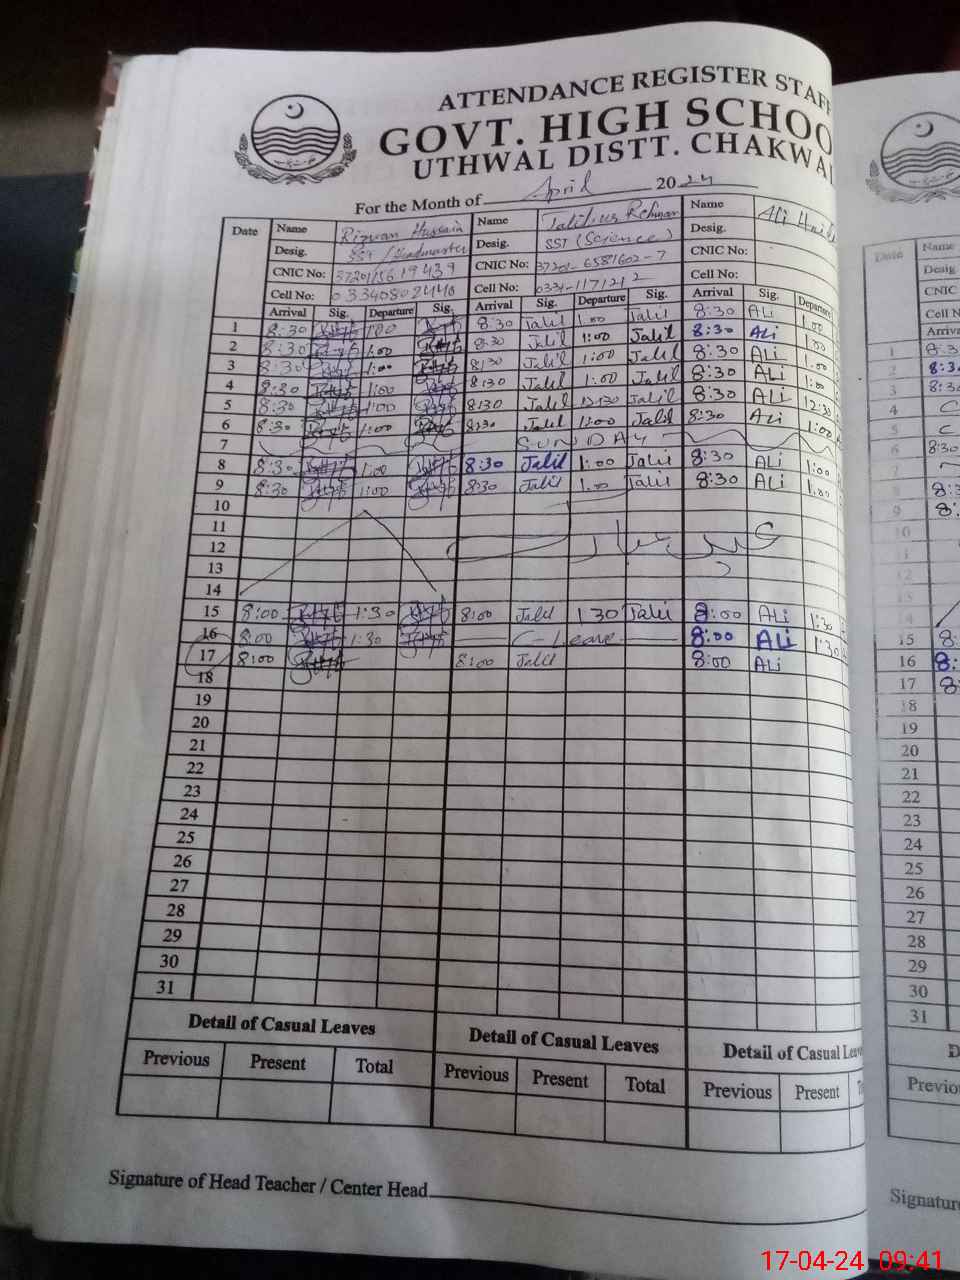 ATTENDANCE REGISTER STAFF
GOVT. HIGH SCHOO
UTHWAL DISTT. CHAKWA
For the Month of April 2024
Date Name Rizwan Hussain Name Rehman Name Ali
Desig. SST / Headmaster Desig. SST (Science) Desig.
CNIC No: CNIC No: 37201-6581602-7 CNIC No:
Cell No: 03340802440 Cell No: 0334-1171212 Cell No:
Arrival Sig. Departure Sig. Arrival Sig. Departure Sig. Arrival Sig. Departure
1 8:30 1:00 8:30 Jalil 1:00 Jalil 8:30 ALi 1:00
2 8:30 1:00 8:30 Jalil 1:00 Jalil 8:30 ALi 1:00
3 8:30 1:00 8:30 Jalil 1:00 Jalil 8:30 ALi 1:00
4 8:30 1:00 8:30 Jalil 1:00 Jalil 8:30 ALi 1:00
5 8:30 1:00 8:30 Jalil 12:30 Jalil 8:30 ALi 12:30
6 8:30 1:00 8:30 Jalil 1:00 Jalil 8:30 ALi 1:00
7 SUNDAY
8 8:30 1:00 8:30 Jalil 1:00 Jalil 8:30 ALi 1:00
9 8:30 1:00 8:30 Jalil 1:00 Jalil 8:30 ALi 1:00
10
11
12 عید مبارک
13
14
15 8:00 1:30 8:00 Jalil 1:30 Jalil 8:00 ALi 1:30
16 8:00 1:30 C-Leave 8:00 ALi 1:30
17 8:00 8:00 Jalil 8:00 ALi
18
19
20
21
22
23
24
25
26
27
28
29
30
31
Detail of Casual Leaves Detail of Casual Leaves Detail of Casual Leave
Previous Present Total Previous Present Total Previous Present
Signature of Head Teacher / Center Head
Date Name
Desig
CNIC
Cell N
Arriva
1 8:3
2 8:3
3 8:3
4 C
5 C
6 8:30
7
8 8:3
9 8:
10
11
12
13
14
15 8:
16 8:
17 8
18
19
20
21
22
23
24
25
26
27
28
29
30
31
D
Previo
Signature
17-04-24 09:41